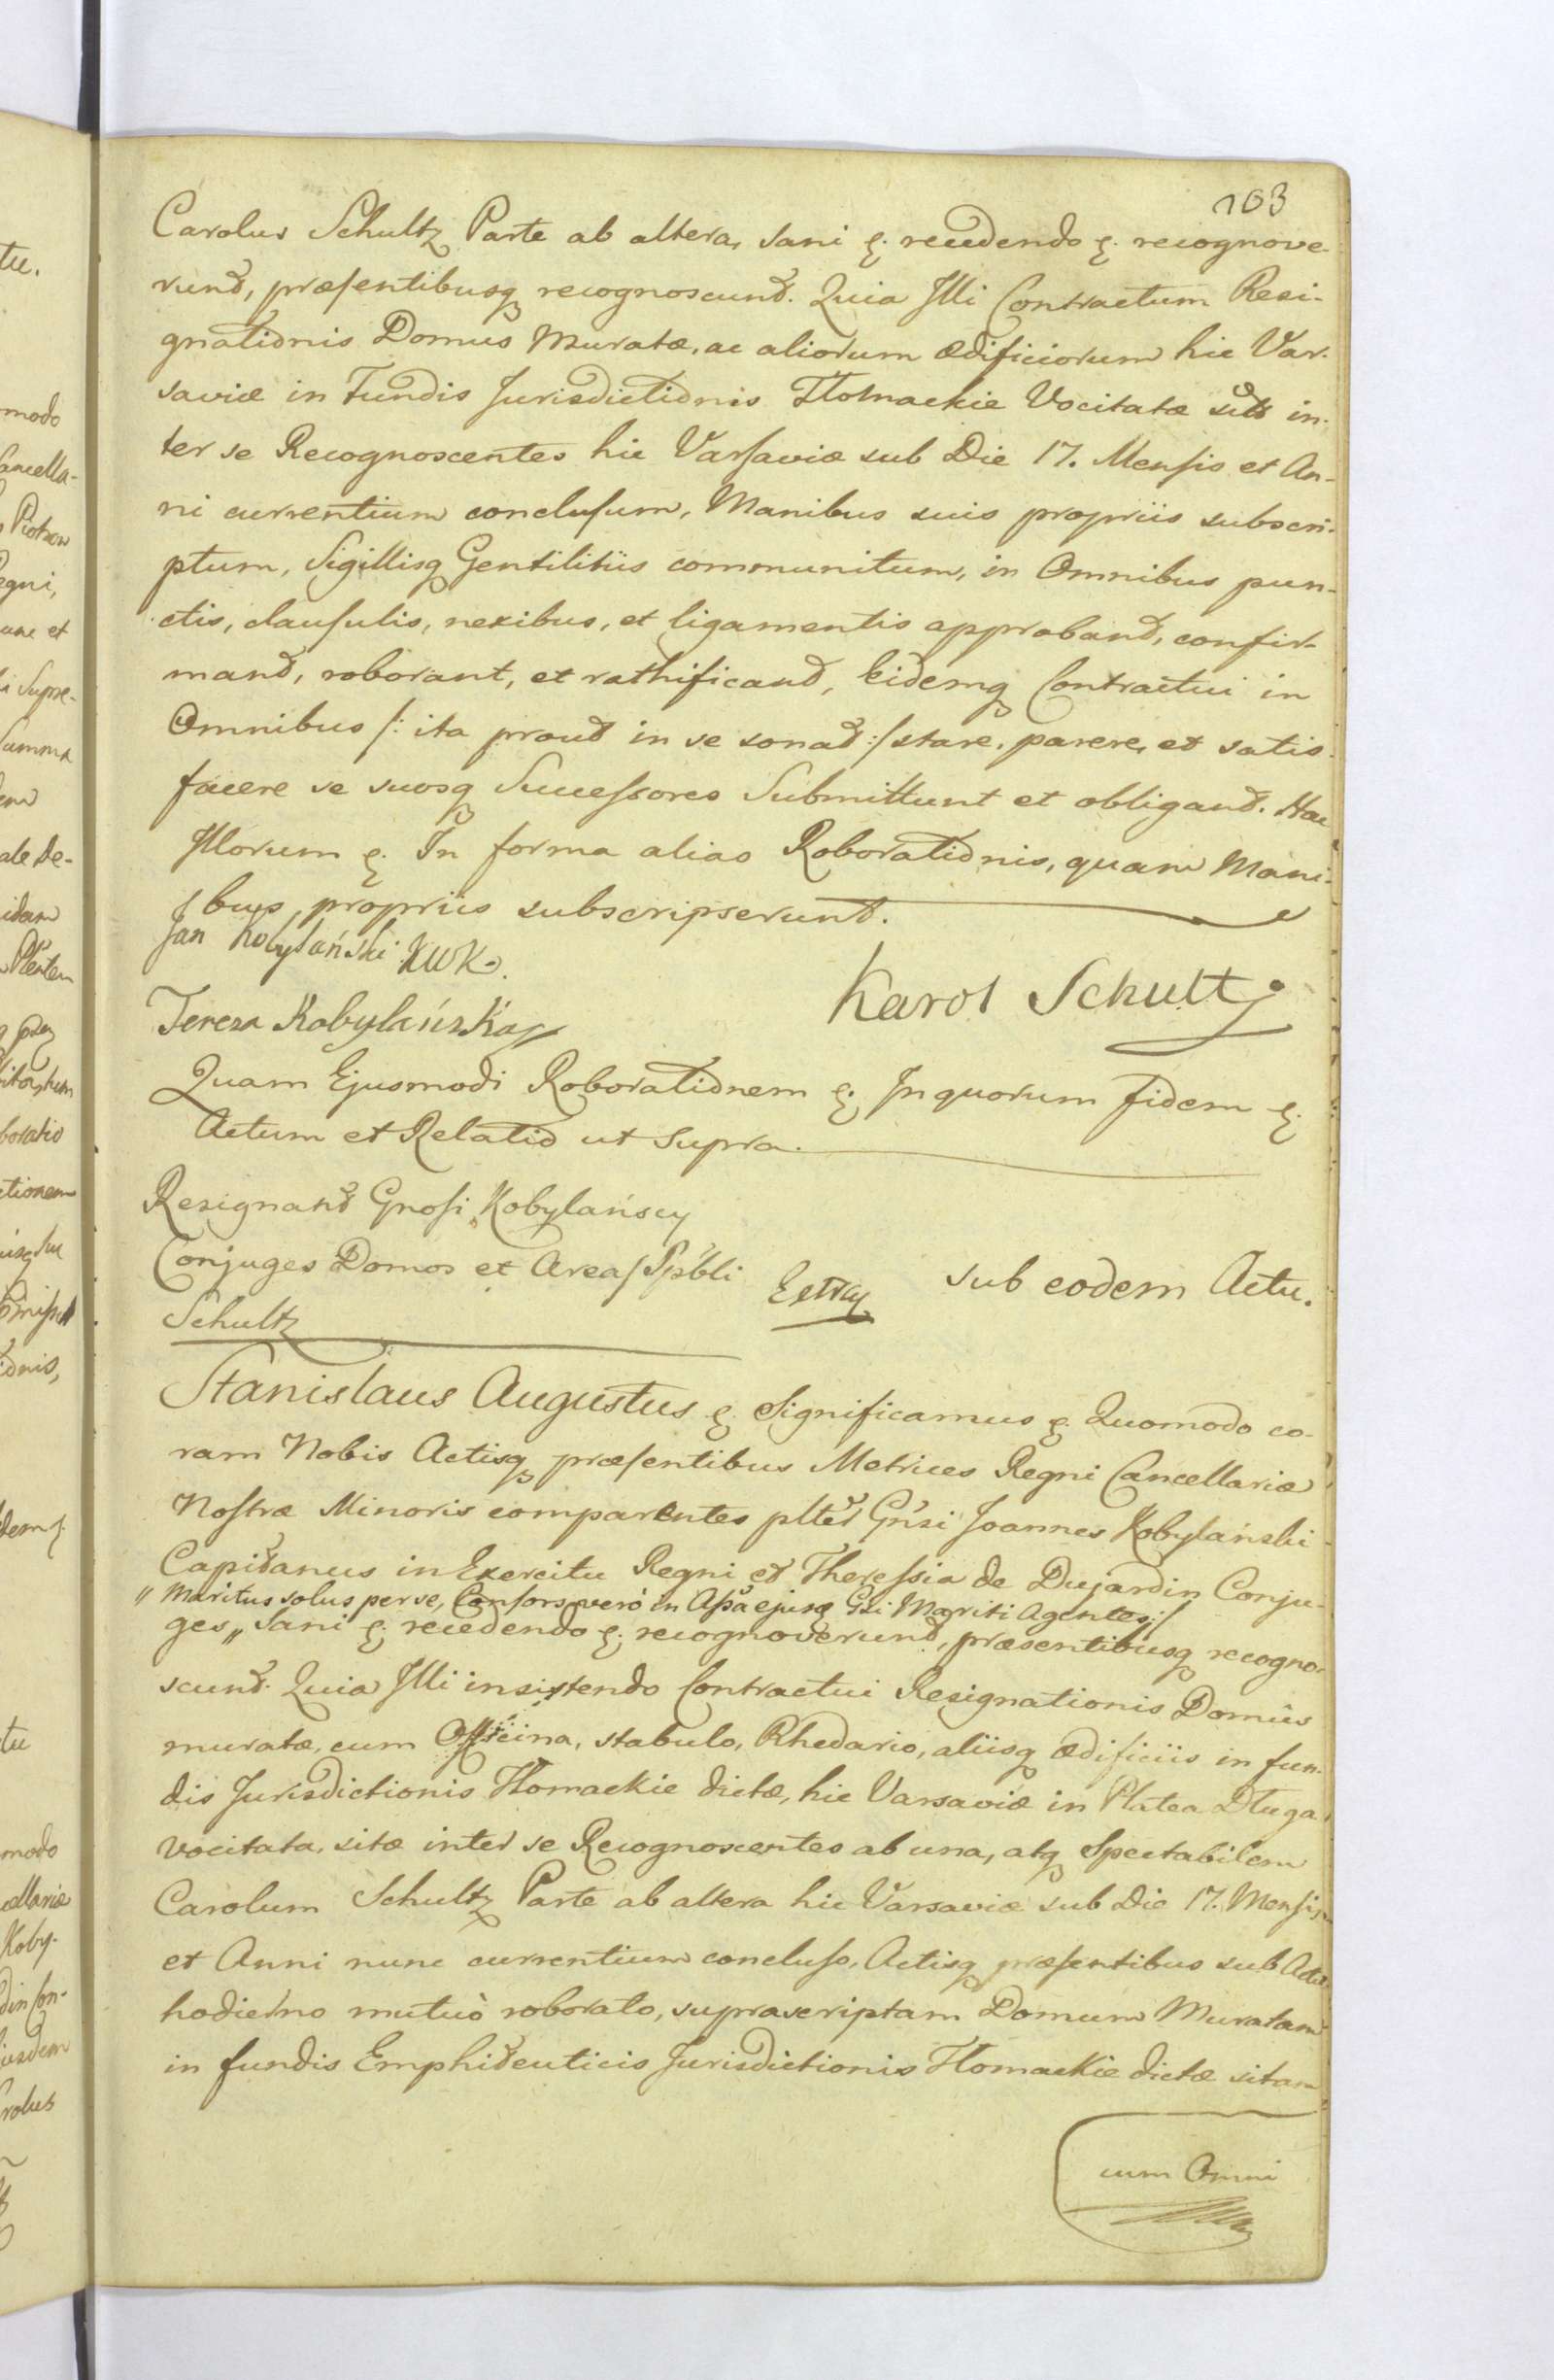 103
Carolus Schultz Parte ab altera, sani &. recedendo &. recognove-
runt, præsentibusq recognoscunt. Quia Illi Contractum Resi-
gnationis Domus Muratæ, ac aliorum Ædificiorum hic Var-
saviæ in Fundis Jurisdictionis Tłomackie Vocitatæ in-
ter se Recognoscentes hic Varsaviæ sub Die 17. Mensis et An-
ni currentium conclusum, Manibus suis propriis subscri-
ptum, Sigillisq Gentilitiis communitum, in Omnibus pun-
ctis, clausulis, nexibus, et ligamentis approbant, confir-
mant, roborant, et rathificant, Eidemq Contractui in
Omnibus /: ita prout in se sonat :/ stare, parere, et satis-
facere se suosq Successores Submittunt et obligant. Hac
Illorum &. In forma alias Roborationis, quam Mani-
bus propriis subscripserunt.
Jan Kobylański KWK.
Karol Schultz
Teresa Kobylańska
Quam Ejusmodi Roborationem &. In quorum fidem &.
Actum et Relatio ut Supra.
Resignant Gnosi Kobylańscy
Conjuges Domos et Areas Spbli
Extray
sub eodem Actu.
Schultz
Stanislaus Augustus &. Significamus &. Quomodo co-
ram Nobis Actisq præsentibus Metrices Regni Cancellariæ
Nostræ Minoris comparentes plter Gnsi Joannes Kobylański
Capitanus in Exercitu Regni et Theressia de Dujardin Conju-
" Maritus solus per se, Consors verò in Assa ejusq Gsi Mariti Agentes :/
ges " Sani &. recedendo &. recognoverunt, præsentibusq recogno-
scunt. Quia Illi insistendo Contractui Resignationis Domûs
muratæ, cum Officina, stabulo, Rhedario, aliisq ædificiis in fun-
dis Jurisdictionis Tłomackie dictæ, hic Varsaviæ in Platea Długa
vocitata, sitæ inter se Recognoscentes ab una, atq Spectabilem
Carolum Schultz Parte ab altera hic Varsaviæ sub Die 17. Mensis
et Anni nunc currentium concluso, Actisq præsentibus sub Actu
hodierno mutuò roborato, suprascriptam Domum Muratam
in fundis Emphiteuticis Jurisdictionis Tłomackie dictæ sitam
cum Omni